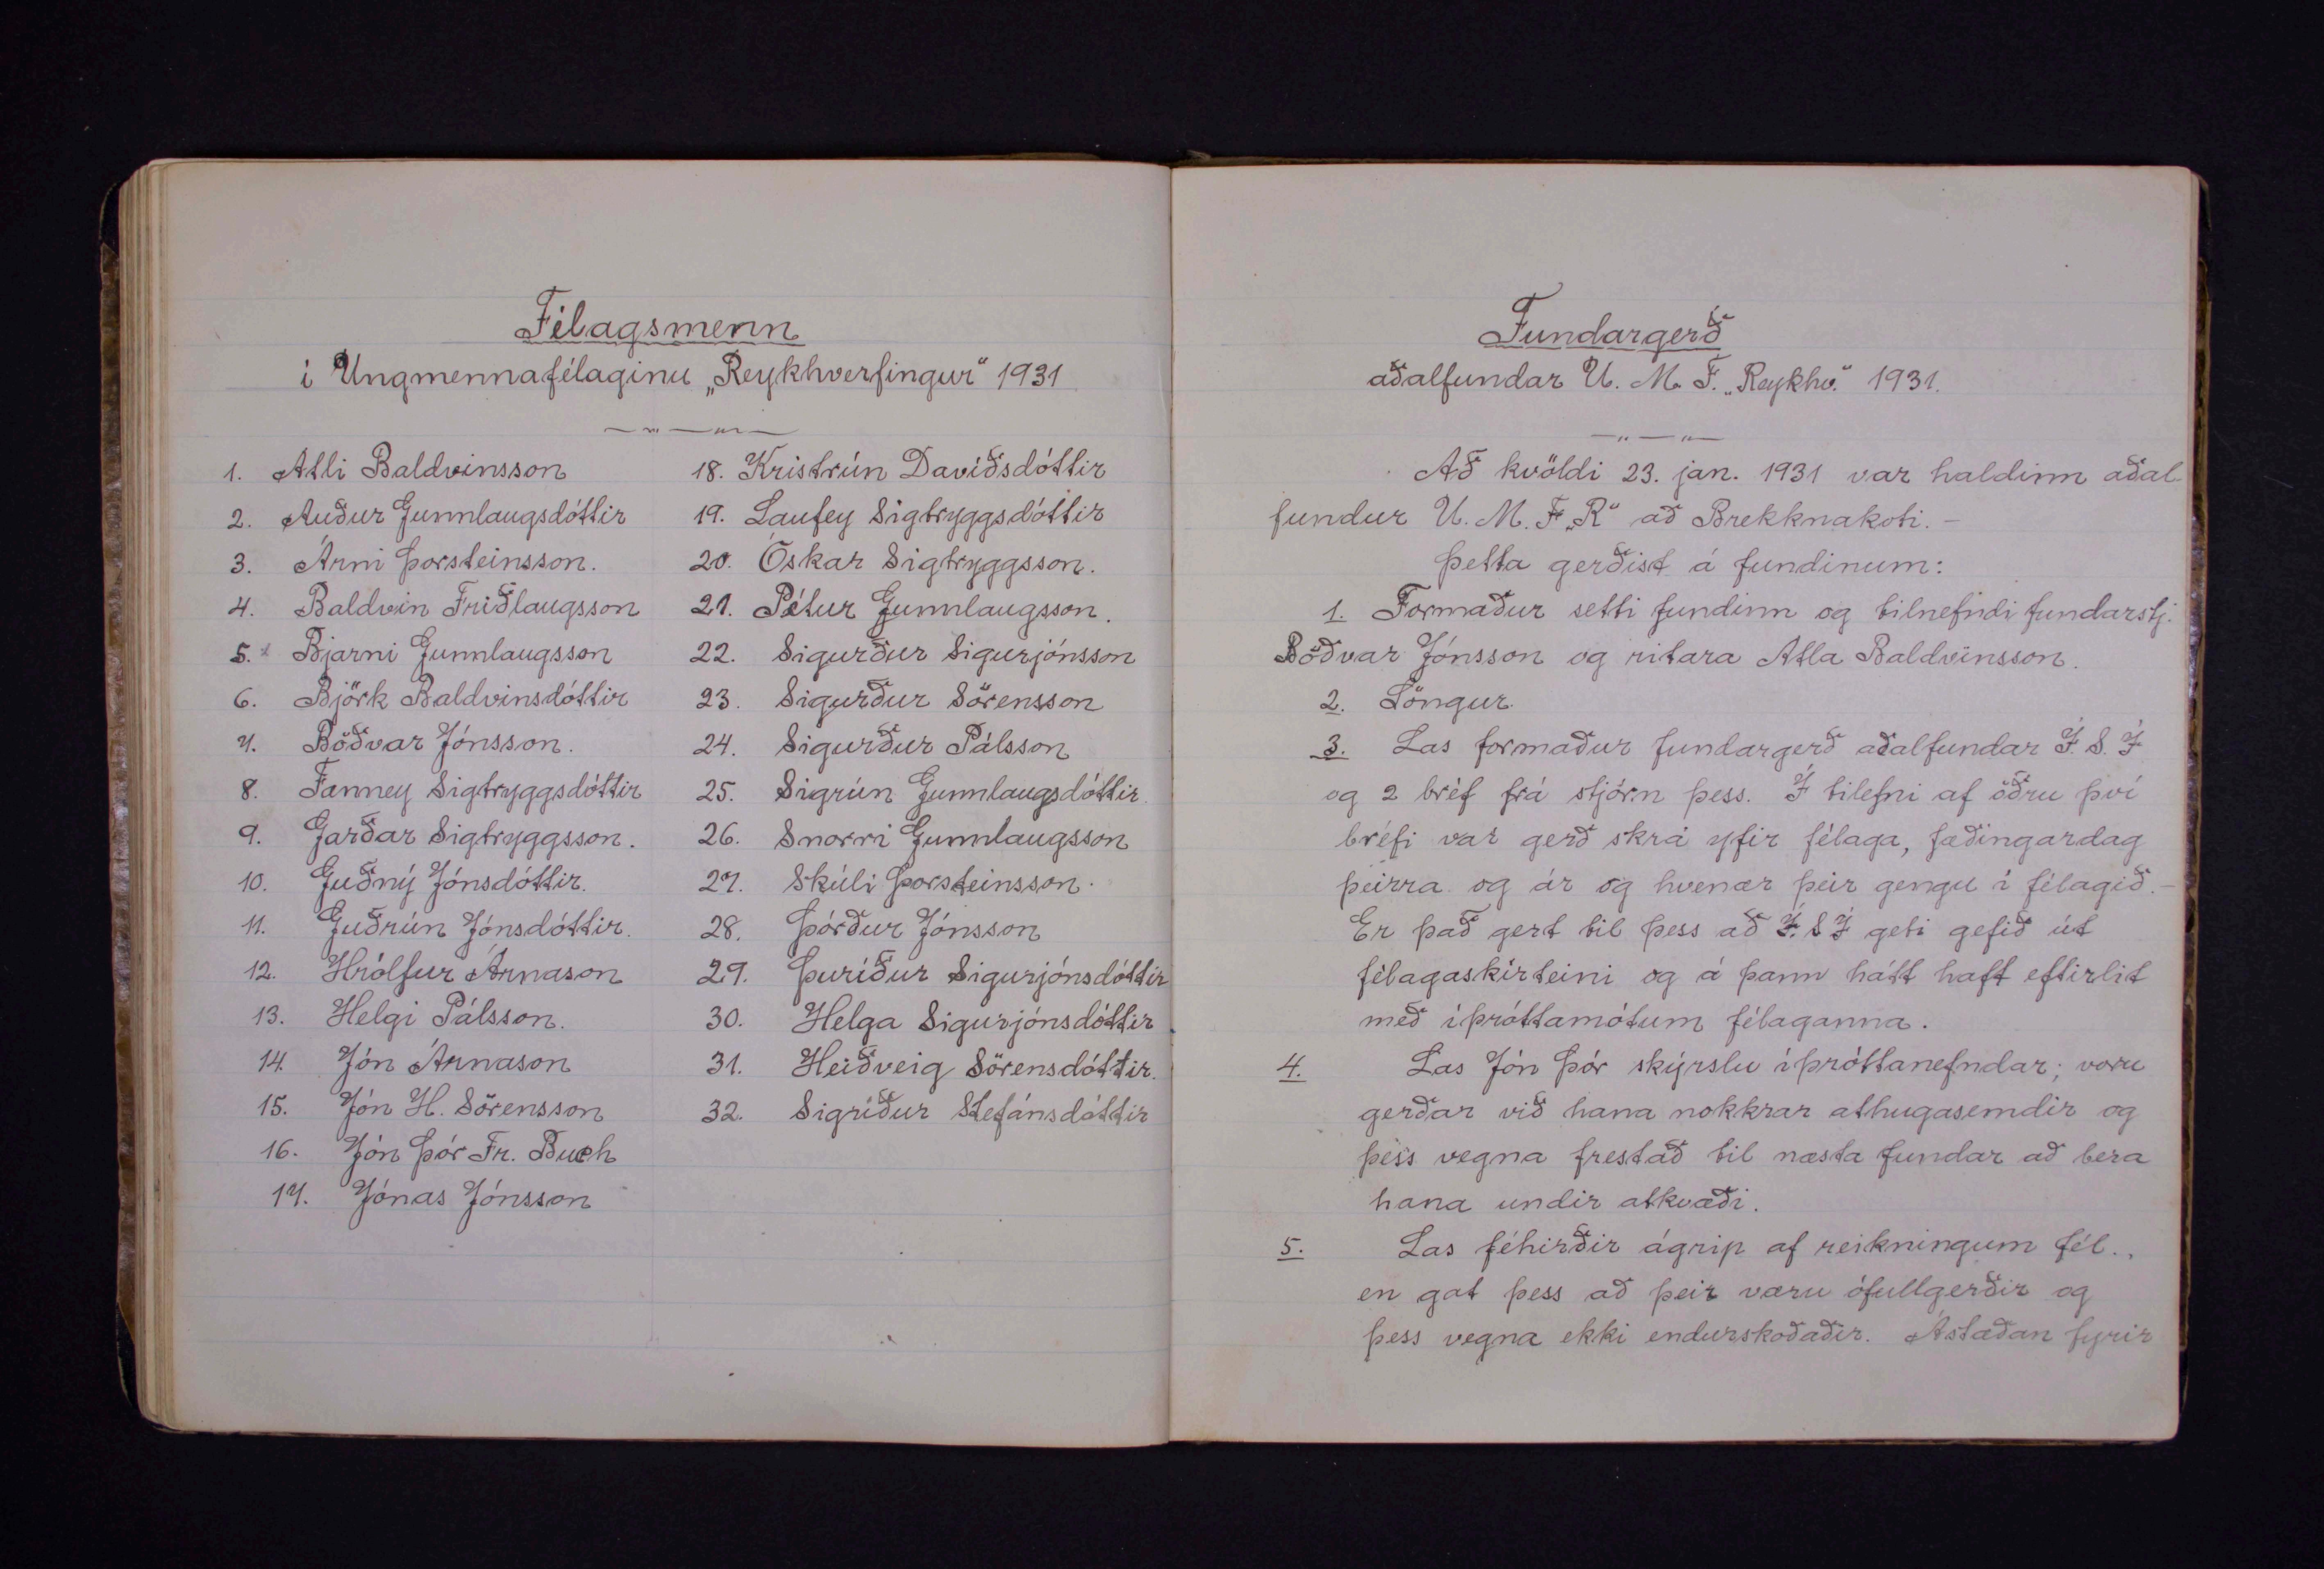 Félagsmenn
í Ungmennafélaginu „Reykhverfingur" 1931
1. Atli Baldvinsson
2. Auður Gunnlaugsdóttir
3. Árni Þorsteinsson.
4. Baldvin Friðlaugsson
5. Bjarni Gunnlaugsson
6. Björk Baldvinsdóttir
7. Böðvar Jónsson.
8. Fanney Sigtryggsdóttir
9. Garðar Sigtryggsson.
10. Guðný Jónsdóttir.
11. Guðrún Jónsdóttir.
12. Hrólfur Árnason
13. Helgi Pálsson.
14. Jón Árnason
15. Jón H. Sörensson
16. Jón Þór Fr. Buch
17. Jónas Jónsson
18. Kristrún Davíðsdóttir
19. Laufey Sigtryggsdóttir
20. Óskar Sigtryggsson.
21. Pétur Gunnlaugsson.
22. Sigurður Sigurjónsson
23. Sigurður Sörensson
24. Sigurður Pálsson
25. Sigrún Gunnlaugsdóttir.
26. Snorri Gunnlaugsson
27. Skúli Þorsteinsson.
28. Þórður Jónsson
29. Þuríður Sigurjónsdóttir
30. Helga Sigurjónsdóttir
31. Heiðveig Sörensdóttir.
32. Sigríður Stefánsdóttir
Fundargerð
aðalfundar U. M. F. „Reykhv." 1931.
Að kvöldi 23. jan. 1931 var haldinn aðal-
fundur U. M. F „R" að Brekknakoti. -
Þetta gerðist á fundinum:
1. Formaður setti fundinn og tilnefndi fundarstj.
Böðvar Jónsson og ritara Atla Baldvinsson.
2. Söngur.
3. Las formaður fundargerð aðalfundar Í. S. Í
og 2 bréf frá stjórn þess. Í tilefni af öðru því
bréfi var gerð skrá yfir félaga, fæðingardag
þeirra og ár og hvenær þeir gengu í félagið. -
Er það gert til þess að Í. S Í geti gefið út
félagaskírteini og á þann hátt haft eftirlit
með íþróttamótum félaganna.
4. Las Jón Þór skýrslu íþróttanefndar; voru
gerðar við hana nokkrar athugasemdir og
þess vegna frestað til næsta fundar að bera
hana undir atkvæði.
5. Las féhirðir ágrip af reikningum fél.,
en gat þess að þeir væru ófullgerðir og
þess vegna ekki endurskoðaðir. Ástæðan fyrir